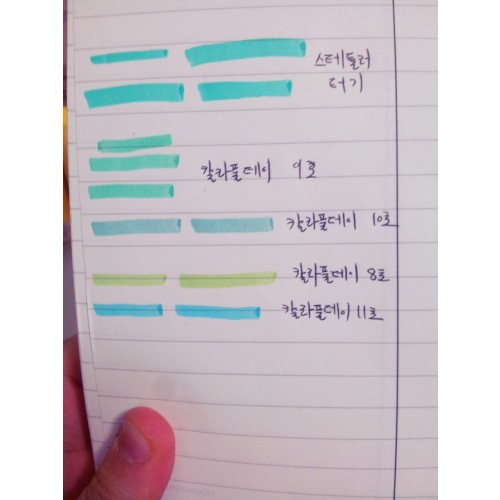 스테들러
터기
칼라풀데이 9호
칼라풀데이 10호
칼라풀데이 8호
칼라풀데이 11호